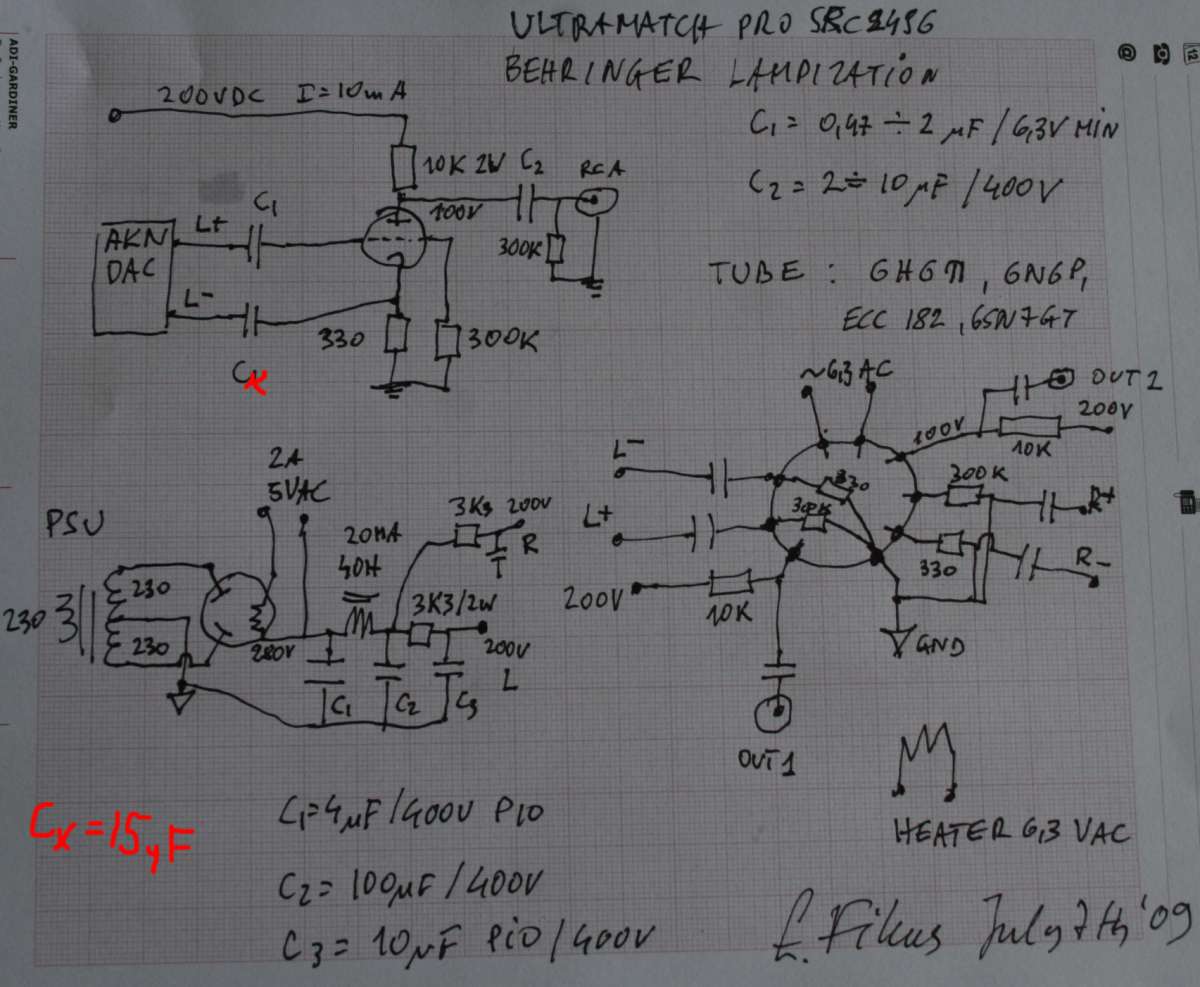 ULTRAMATCH PRO SRC2496
BEHRINGER LAMPIZATION
ADI-GARDINER
12
@
200VDC I=10mA
10K 2W
C2
RCA
100V
300K
C1
L+
AKN
DAC
L-
330
300K
Cx
C1 = 0,47 ÷ 2 µF / 6,3V MIN
C2 = 2 ÷ 10µF / 400V
TUBE : 6H6П, 6N6P,
ECC 182, 6SN7GT
~6,3 AC
OUT 2
100V
200V
10K
L-
330
300K
R+
L+
300K
330
R-
200V
10K
GND
OUT 1
PSU
2A
5VAC
20MA
40H
3K3
200V
R
230
230
230
280V
3K3/2W
200V
L
C1
C2
C3
HEATER 6,3 VAC
Cx = 15yF
C1=4µF/400V PIO
C2= 100µF/400V
C3 = 10µF PiO/400V
Ł. Fikus July 7th '09